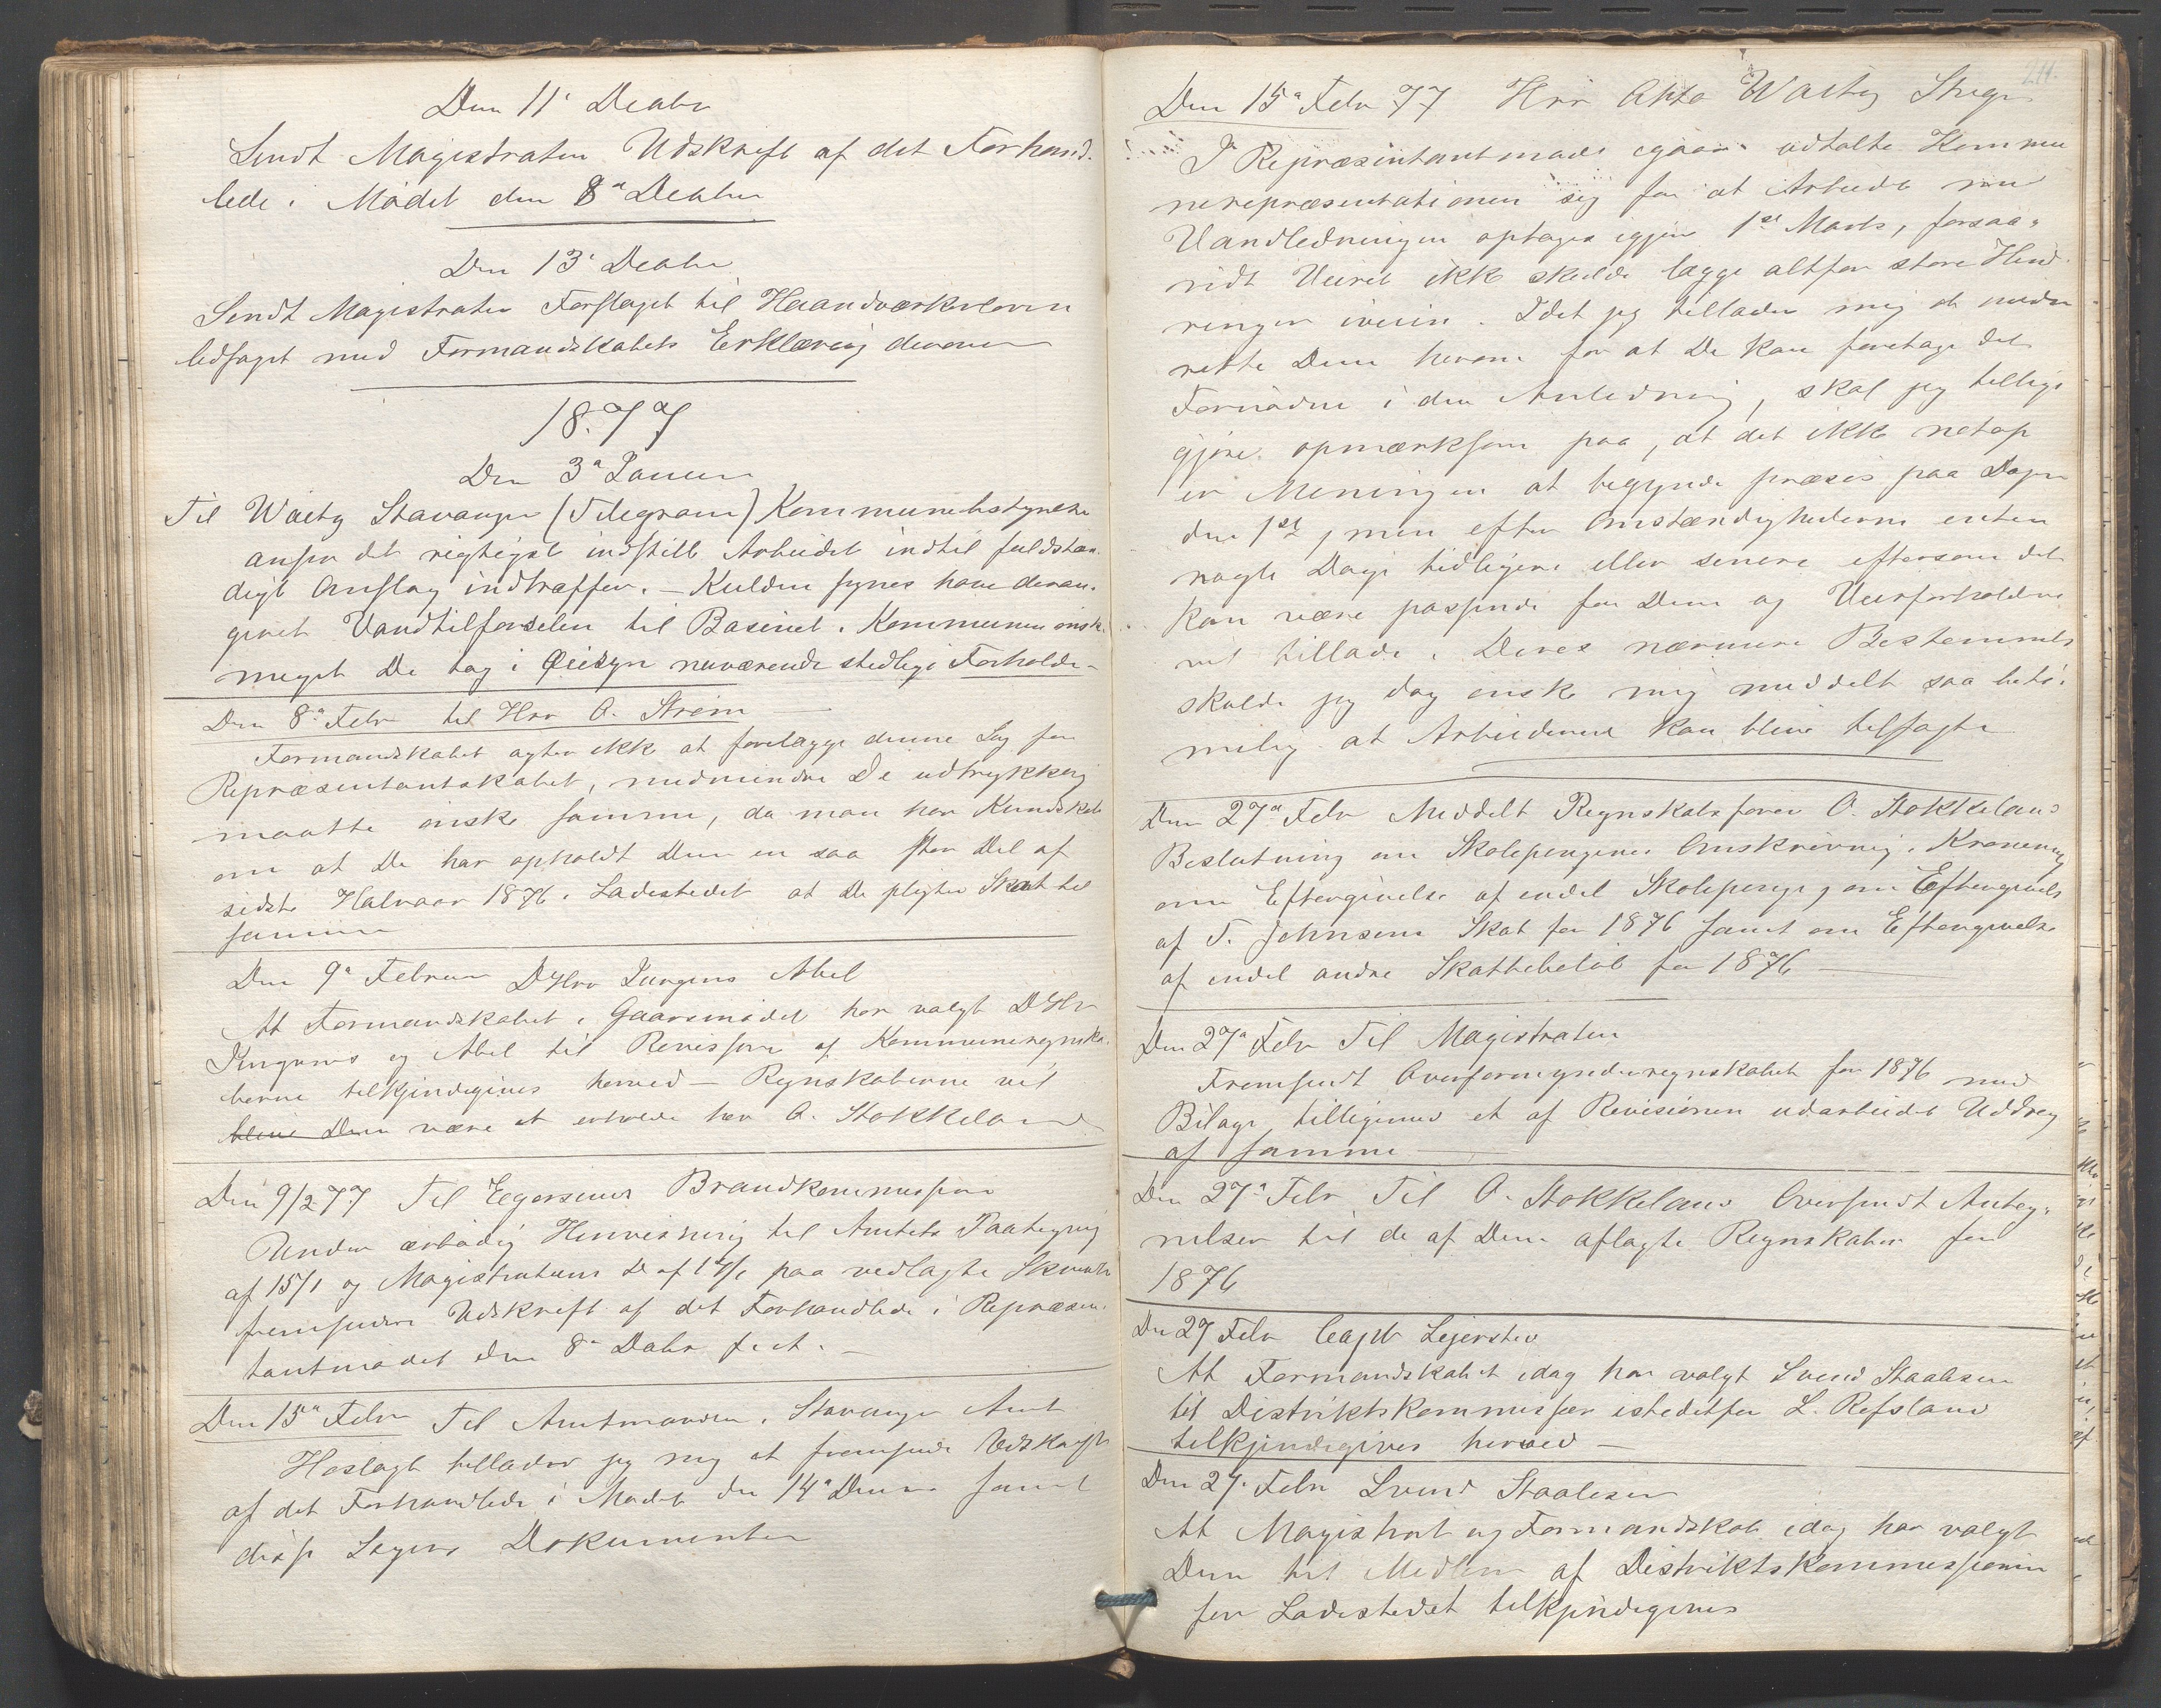 Den 11' Decbr
Sendt Magistraten Udskrift af det Forhand-
lede i Mødet den 8de Decbr
Den 13' Decbr
Sendt Magistraten Forslaget til Haandværkerloven
ledsaget med Formandskabets Erklæring derover
1877
Den 3die Januar
Til Waity Stavanger (Telegram) Kommunebestyrelsen
anser det rigtigst indstille Arbeidet indtil fuldstæn-
digt Omslag indtræffer. – Kulden synes have deran-
geret Vandtilførselen til Basinet. Kommunen ønsk.
meget De tog i Øiesyn nuværende stedlige Forholde –
Den 8de Febr til Hrr O. Strøm
Formandskabet agter ikke at forelægge denne Sag for
Repræsentantskabet, medmindre De udtrykkelig
maatte ønske samme, da man har Kundskab
om at De har opholdt Dem en saa stor Del af
sidste Halvaar 1876 i Ladestedet at De pligter Skat til
samme
Den 9de Februar DHrr Jürgens Abel
At Formandskabet i Gaarsmødet har valgt DHrr
Jürgens og Abel til Revisorer af Kommuneregnska-
berne tilkjendegives herved – Regnskaberne vil
blive Dem være at erholde hos O. Stokkeland
Den 9/2 77 Til Egersunds Brandkommission
Under ærbødig Henvisning til Amtets Paategning
af 15/1 og Magistratens D. af 17/1 paa vedlagte Skrivelse
fremsendes Udskrift af det Forhandlede i Repræsen-
tantmødet den 8de Decbr f. A. –
Den 15de Febr Til Amtmanden i Stavanger Amt
Hoslagt tillader jeg mig at fremsende Udskrift
af det Forhandlede i Mødet den 14de Dennes samt
disse Sagers Dokumenter
211.
Den 15de Febr 77 Hrr Waity
I Repræsentantmøde igaar udtalte Kommu
nerepræsentationen sig for at Arbeidet med
Vandledningen optages igjen 1ste Marts, forsaa-
vidt Veiret ikke skulde lægge altfor store Hind-
ringer iveien. Idet jeg tillader mig at under
rette Dem herom for at De kan foretage det
Fornødne i den Anledning, skal jeg tillige
gjøre opmærksom paa, at det ikke netop
er Meningen at begynde præcis paa Dagen
den 1ste, men efter Omstændighederne enten
nogle Dage tidligere eller senere eftersom det
kan være passende for Dem og Veirforholdene
vil tillade. Deres nærmere Bestemmelse
skulde jeg dog ønske mig meddelt saa betí-
melig at Arbeiderne kan blive tilsagte
Den 27de Febr Meddelt Regnskabsfører O. Stokkeland
Beslutning om Skolepengenes Omskrivning i Kroner
om Eftergivelse af endel Skolepenge, om Eftergivelse
af T. Johnsens Skat for 1876 samt om Eftergivelse
af endel andre Skattebeløb for 1876 –
Den 27de Febr Til Magistraten
Fremsendt Overformynderregnskabet for 1876 med
Bilage tilligemed et af Revisionen udarbeidet Uddrag
af samme
Den 27de Febr Til O. Stokkeland Oversendt Anteg-
nelser til de af Dem aflagte Regnskaber for
1876
Den 27 Febr Capt Lejersted
At Formandskabet idag har valgt Svend Staalesen
til Distriktskommissær istedetfor L. Refsland
tilkjendegives herved –
Den 27. Febr Svend Staalesen
At Magistrat og Formandskab idag har valgt
Dem til Medlem af Distriktskommissionen
for Ladestedet tilkjendegives